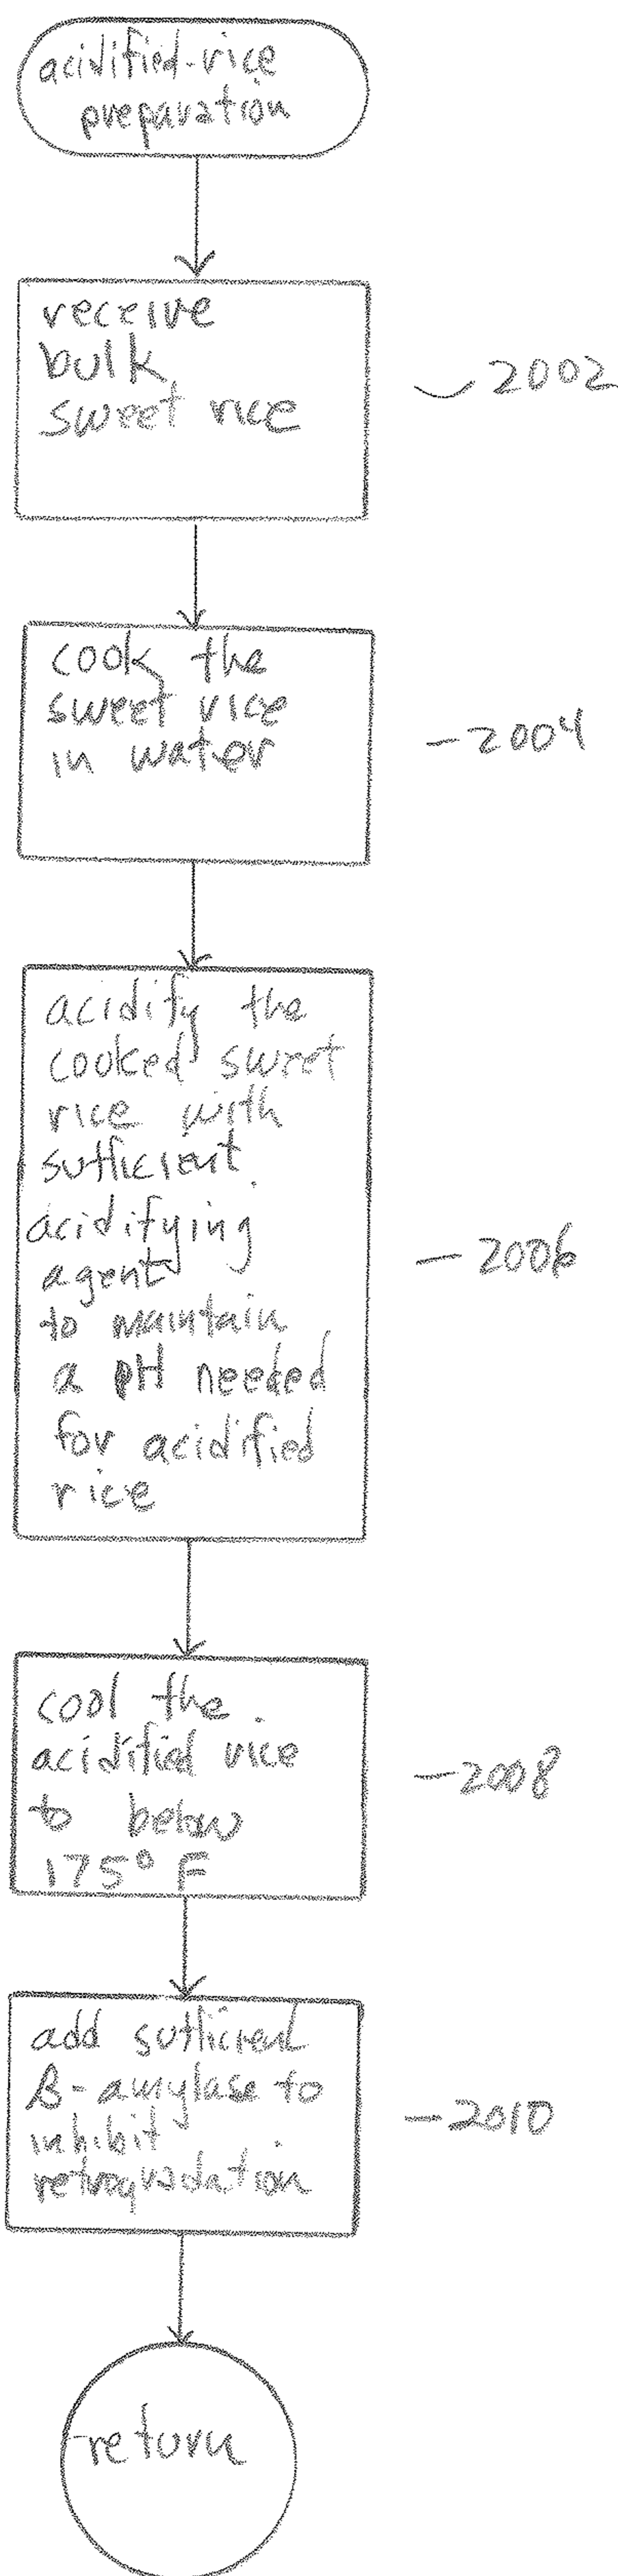 acidified-rice
preparation
receive
bulk
sweet rice
2002
cook the
sweet rice
in water
2004
acidify the
cooked sweet
rice with
sufficient
acidifying
agent
to maintain
a pH needed
for acidified
rice
2006
cool the
acidified rice
to below
175° F
2008
add sufficient
β-amylase to
inhibit
retrogradation
2010
return